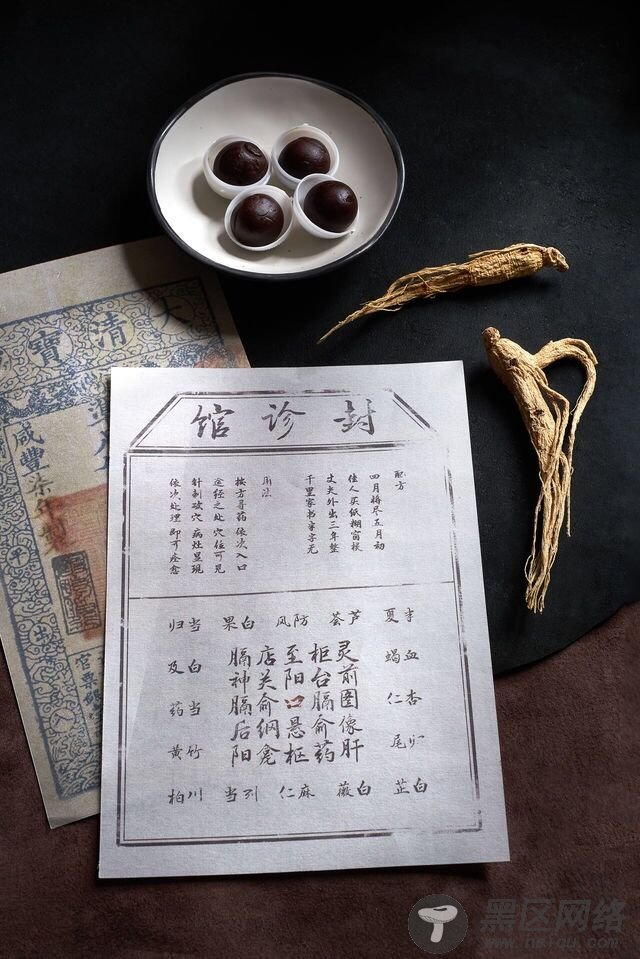 大清寶
咸豐柒年
封诊馆
配方
四月将尽五月初
佳人买纸糊窗棂
丈夫外出三年整
千里家书字
用法
按方寻药 依次入口
途经之处 穴位可见
针刺破穴 病灶显现
依次处理 即可痊愈
夏 芦荟 防风 白果 当归
血蝎 白及
杏仁 当药
尾 竹黄
白芷 白薇 麻仁 当 川柏
灵前图像肝
柜台膈俞药
至阳口悬柩
店关俞纲龛
膈神膈后阳
黑区网络
www.heiqu.com